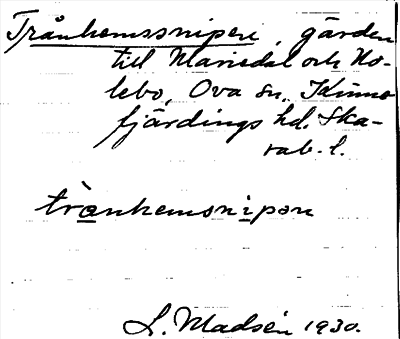 Trånhemssnipen, gärden
till Mariedal och Ho-
lebo, Ova sn., Kinne
fjärdings hd. Ska-
rab. l.
trånhemsnipən
L. Madsén 1930.